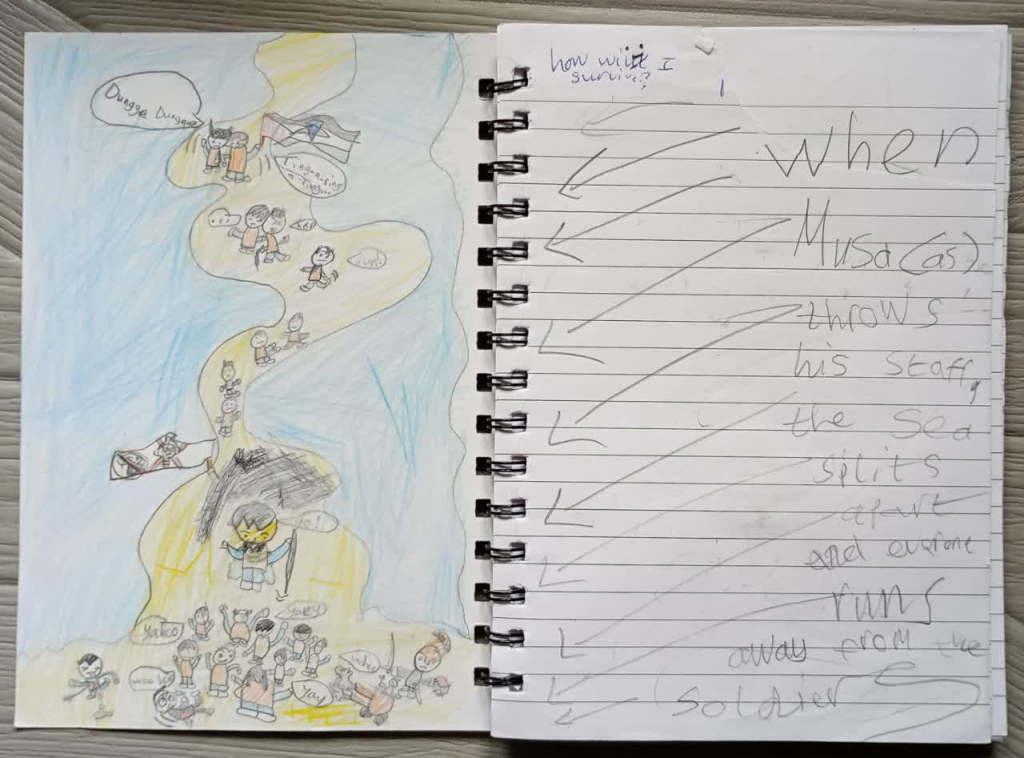 Dungga Dungga
Ting-a-ting
a-Ting...
Yahoo
Yaay
Yay
how will I
survive?
When
Musa (as)
throws
his staff,
the sea
splits
apart
and evarone
runs
away from the
Soldier